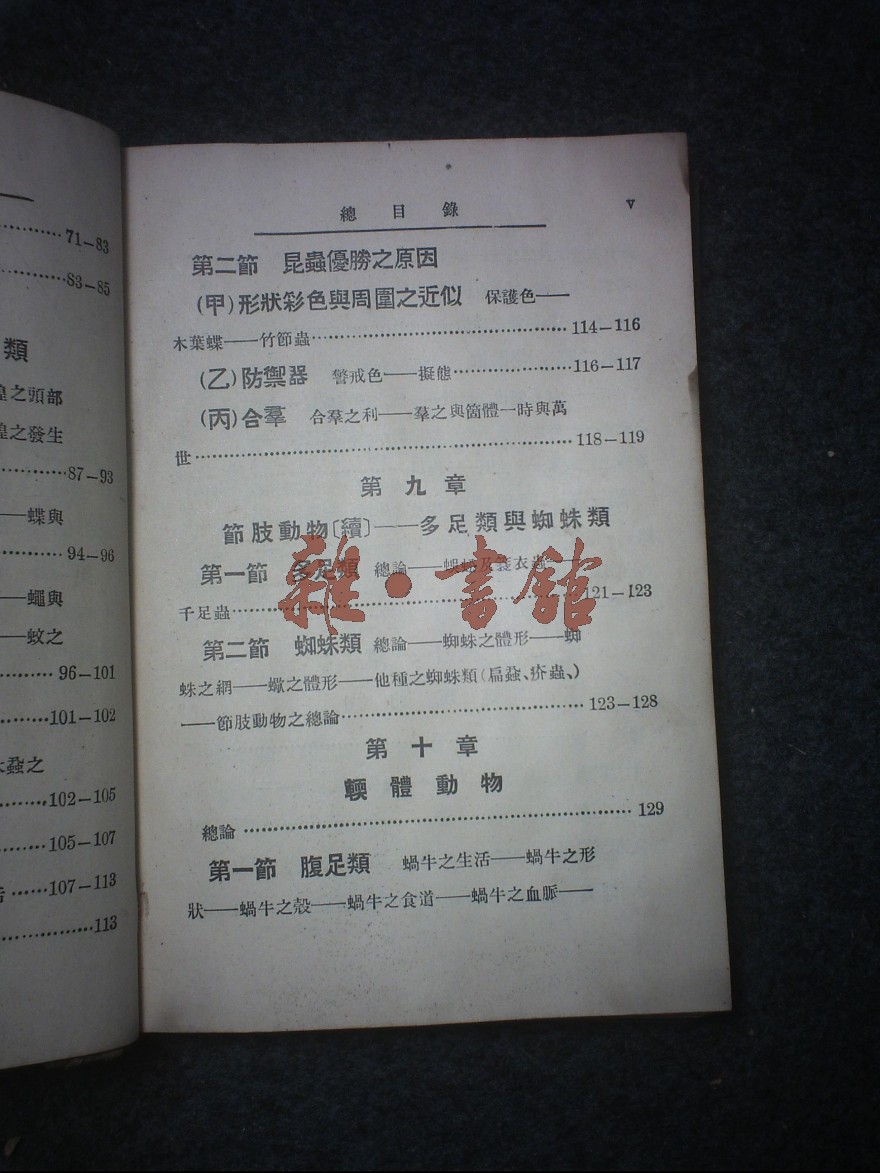 71—83
83—85
類
蝗之頭部
蝗之發生
87—93
——蝶與
94—96
——蠅與
——蚊之
96—101
101—102
蝨之
102—105
105—107
107—113
113
總目錄 v
第二節 昆蟲優勝之原因
(甲)形狀彩色與周圍之近似 保護色——
木葉蝶——竹節蟲……114—116
(乙)防禦器 警戒色——擬態……116—117
(丙)合羣 合羣之利——羣之與箇體一時與萬
世……118—119
第九章
節肢動物〔續〕——多足類與蜘蛛類
第一節 多足類 總論——蜈蚣及蓑衣蟲——
千足蟲……121—123
第二節 蜘蛛類 總論——蜘蛛之體形——蜘
蛛之網——蠍之體形——他種之蜘蛛類(扁蝨、疥蟲、)
——節肢動物之總論……123—128
第十章
輭體動物
總論……129
第一節 腹足類 蝸牛之生活——蝸牛之形
狀——蝸牛之殼——蝸牛之食道——蝸牛之血脈——
雜·書館